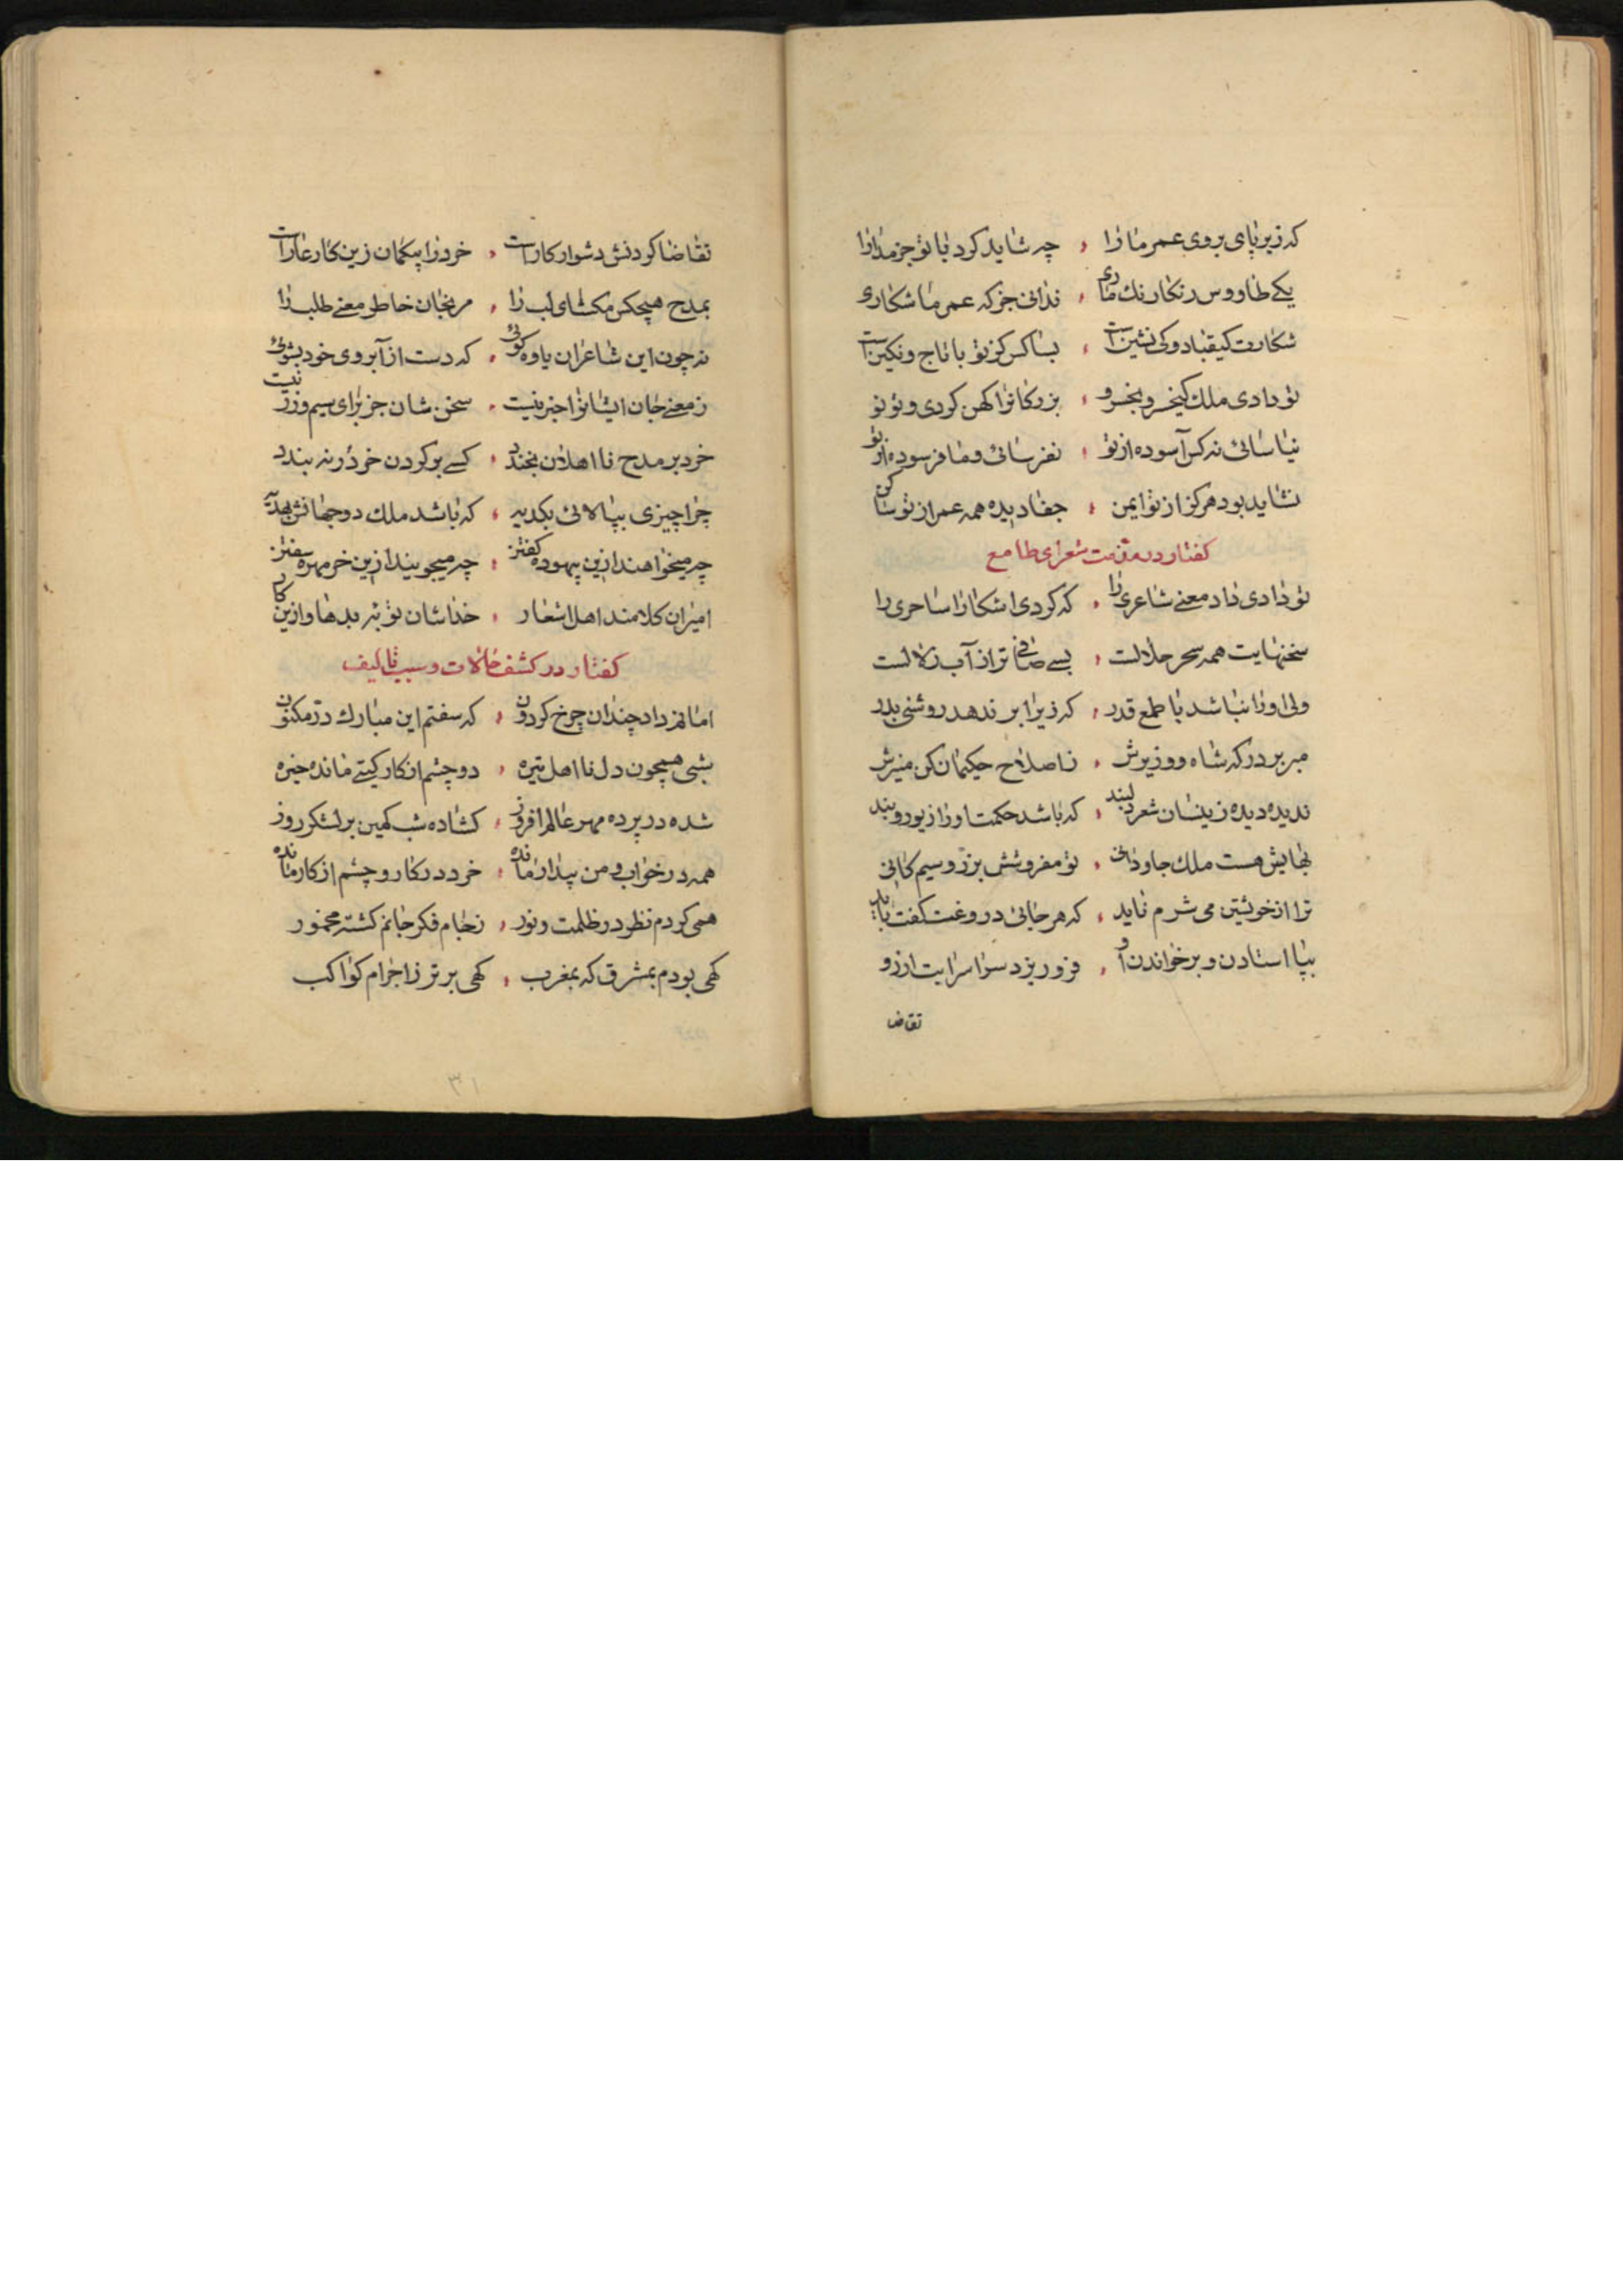 که زیر پای بروی عمر ما را ، چه شاید کرد با تو جز مدارا
یکی طاووس رنکارنك ماری ، ندانی جز که عمر ما شکاری
شکارت کیقباد و کی نشین است ، بسا کس کز تو با تاج و نکین است
تو دادی ملك کیخسرو بخسرو ، بزرکانرا کهن کردی و تو نو
نیاسائی نه کس آسوده از تو ، نفرسائی و ما فرسوده از تو
نشاید بود هرکز از تو ایمن ، جفا دیده همه عمر از تو ساکن
کفتار در مذمت شعرای طامع
تو دادی داد معنی شاعری را ، که کردی اشکارا ساحری را
سخنهایت همه سحر حلالست ، بسی صافی تر از آب زلالست
ولی او را نباشد با طمع قدر ، که زیر ابر ندهد روشنی بدر
مبر بر درکه شاه و وزیرش ، ز اصلاح حکیمان کن منیرش
ندیده دیده زینسان شعر دلبند ، که باشد حکمت او را زیور و بند
بهایش هست ملك جاودانی ، تو مفروشش بزر و سیم کانی
ترا از خویشتن می شرم ناید ، که هر جائی دروغت کفت باید
بپا استادن و بر خواندن او ، فرو ریزد سراسر ابت ازرو
تقاضا
تقاضا کردنش دشوار کار است ، خرد را بیکمان زین کار عار است
بمدح هیچکس مکشای لب را ، مرنجان خاطر معنی طلب را
نه چون این شاعران یاوه کوئی ، که دست از آبروی خود بشوئی
ز معنی جان ایشانرا خبر نیست ، سخن شان جز برای سیم و زر نیست
خرد بر مدح نا اهلان بخندد ، کسی بر کردن خر در نه بندد
چرا چیزی بپالائی بکدیه ، که باشد ملك دو جهانش بهدیه
چه میخواهند ازین بیهوده کفتن ، چه میجویند ازین خر مهره سفتن
امیران کلامند اهل اشعار ، خداشان توبه بدهاد ازین کار
کفتار در کشف حالات و سبب تالیف
امانم داد چندان چرخ کردون ، که سفتم این مبارك در مکنون
بشبی همچون دل نا اهل تیره ، دو چشم از کار کیتی مانده خیره
شده در پرده مهر عالم افروز ، کشاده شب کمین بر لشکر روز
همه در خواب و من بیدار مانده ، خرد در کار و چشم از کار مانده
همی کردم نظر در ظلمت و نور ، ز جام فکر جانم کشته مخمور
کهی بودم بمشرق که بمغرب ، کهی برتر ز اجرام کواکب
۳۱